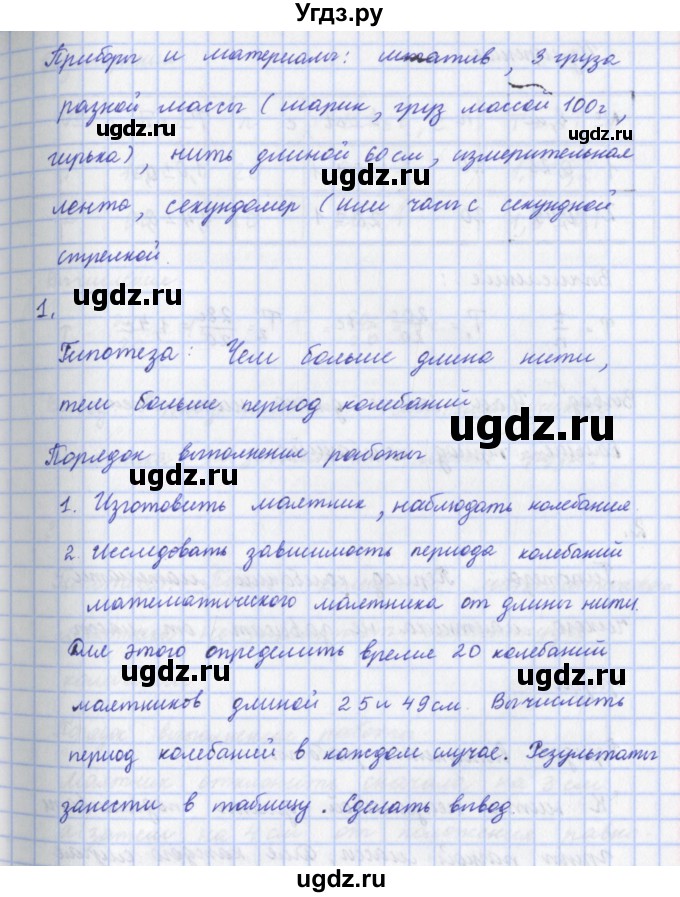 Угдз.ру
Приборы и материалы: штатив, 3 груза
разной массы (шарик, груз массой 100г,
ugdz.ru
гирька), нить длиной 60 см, измерительная
ugdz.ru
лента, секундомер (или часы с секундной
стрелкой.
ugdz.ru
1.
Гипотеза: Чем больше длина нити,
тем больше период колебаний
ugdz.ru
Порядок выполнения работы
1. Изготовить маятник, наблюдать колебания
2. Исследовать зависимость периода колебаний
математического маятника от длины нити.
Для этого определить время 20 колебаний
ugdz.ru
маятников длиной 25 и 49 см. Вычислить
период колебаний в каждом случае. Результаты
ugdz.ru
занести в таблицу. Сделать вывод.
ugdz.ru